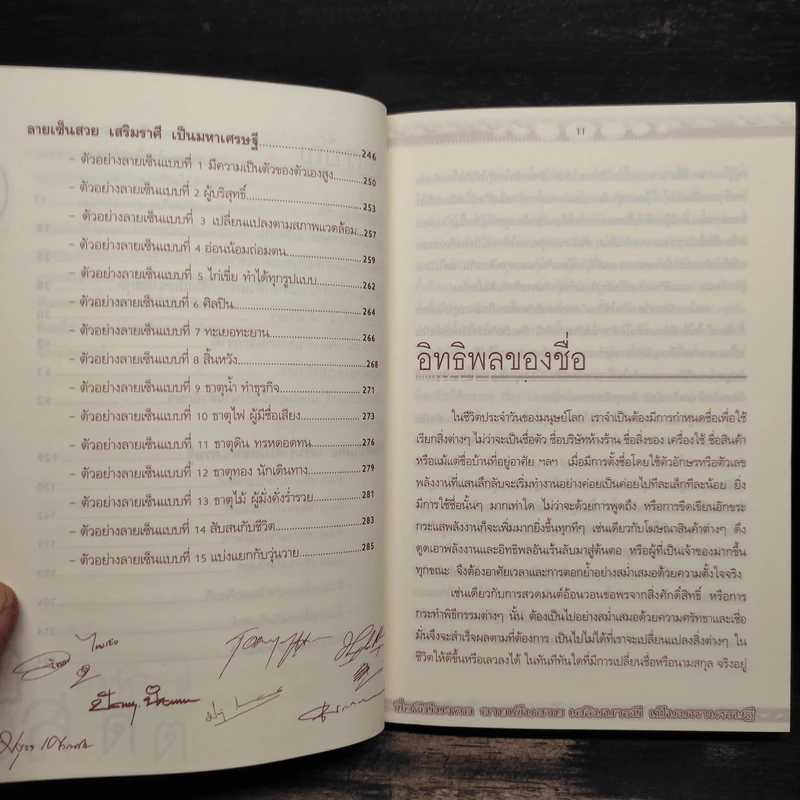 ลายเซ็นสวย เสริมราศี เป็นมหาเศรษฐี..................................246
- ตัวอย่างลายเซ็นแบบที่ 1 มีความเป็นตัวของตัวเองสูง..........250
- ตัวอย่างลายเซ็นแบบที่ 2 ผู้บริสุทธิ์..........253
- ตัวอย่างลายเซ็นแบบที่ 3 เปลี่ยนแปลงตามสภาพแวดล้อม....257
- ตัวอย่างลายเซ็นแบบที่ 4 อ่อนน้อมถ่อมตน..........259
- ตัวอย่างลายเซ็นแบบที่ 5 ไก่เขี่ย ทำได้ทุกรูปแบบ..........262
- ตัวอย่างลายเซ็นแบบที่ 6 ศิลปิน..........264
- ตัวอย่างลายเซ็นแบบที่ 7 ทะเยอทะยาน..........266
- ตัวอย่างลายเซ็นแบบที่ 8 สิ้นหวัง..........268
- ตัวอย่างลายเซ็นแบบที่ 9 ธาตุน้ำ ทำธุรกิจ..........271
- ตัวอย่างลายเซ็นแบบที่ 10 ธาตุไฟ ผู้มีชื่อเสียง..........273
- ตัวอย่างลายเซ็นแบบที่ 11 ธาตุดิน ทรหดอดทน..........276
- ตัวอย่างลายเซ็นแบบที่ 12 ธาตุทอง นักเดินทาง..........279
- ตัวอย่างลายเซ็นแบบที่ 13 ธาตุไม้ ผู้มั่งคั่งร่ำรวย..........281
- ตัวอย่างลายเซ็นแบบที่ 14 สับสนกับชีวิต..........283
- ตัวอย่างลายเซ็นแบบที่ 15 แบ่งแยกกับวุ่นวาย..........285
11
อิทธิพลของชื่อ
ในชีวิตประจำวันของมนุษย์โลก เราจำเป็นต้องมีการกำหนดชื่อเพื่อใช้
เรียกสิ่งต่างๆ ไม่ว่าจะเป็นชื่อตัว ชื่อบริษัทห้างร้าน ชื่อสิ่งของ เครื่องใช้ ชื่อสินค้า
หรือแม้แต่ชื่อบ้านที่อยู่อาศัย ฯลฯ เมื่อมีการตั้งชื่อโดยใช้ตัวอักษรหรือตัวเลข
พลังงานที่แสนลึกลับจะเริ่มทำงานอย่างค่อยเป็นค่อยไปทีละเล็กทีละน้อย ยิ่ง
มีการใช้ชื่อนั้นๆ มากเท่าใด ไม่ว่าจะด้วยการพูดถึง หรือการขีดเขียนอักขระ
กระแสพลังงานก็จะเพิ่มมากยิ่งขึ้นทุกทีๆ เช่นเดียวกับโฆษณาสินค้าต่างๆ ดึง
ดูดเอาพลังงานและอิทธิพลอันเร้นลับมาสู่ต้นตอ หรือผู้ที่เป็นเจ้าของมากขึ้น
ทุกขณะ จึงต้องอาศัยเวลาและการตอกย้ำอย่างสม่ำเสมอด้วยความตั้งใจจริง
เช่นเดียวกับการสวดมนต์อ้อนวอนขอพรจากสิ่งศักดิ์สิทธิ์ หรือการ
กระทำพิธีกรรมต่างๆ นั้น ต้องเป็นไปอย่างสม่ำเสมอด้วยความศรัทธาและเชื่อ
มั่นจึงจะสำเร็จผลตามที่ต้องการ เป็นไปไม่ได้ที่เราจะเปลี่ยนแปลงสิ่งต่างๆ ใน
ชีวิตให้ดีขึ้นหรือเลวลงได้ ในทันทีทันใดที่มีการเปลี่ยนชื่อหรือนามสกุล จริงอยู่